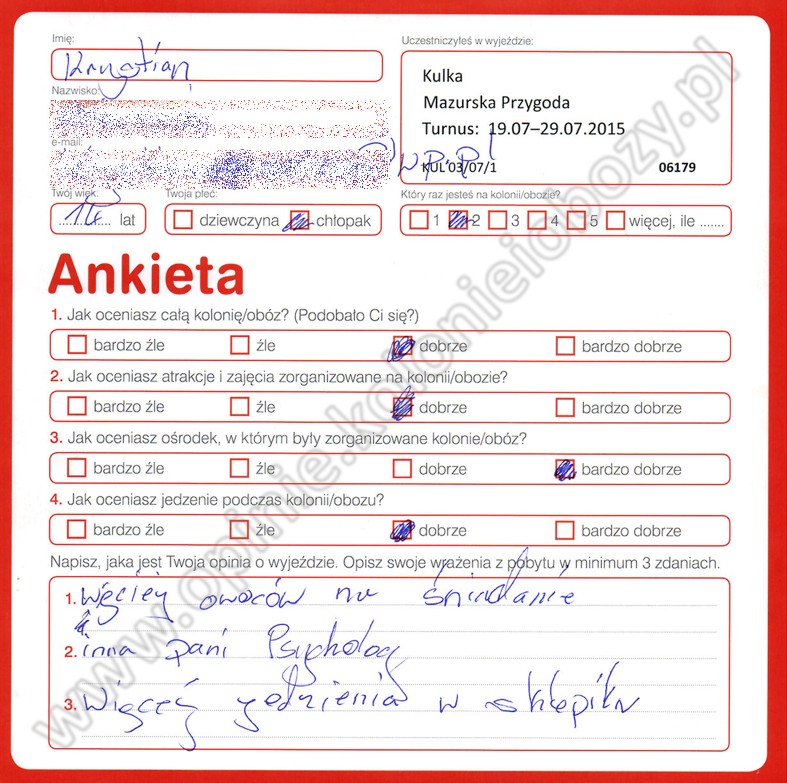 Imię:
Krystian
Uczestniczyłeś w wyjeździe:
Kulka
Mazurska Przygoda
Turnus: 19.07–29.07.2015
KUL 03/07/1 06179
Nazwisko:
e-mail:
wp.pl
Twój wiek:
14 lat
Twoja płeć:
dziewczyna chłopak
Który raz jesteś na kolonii/obozie?
1 2 3 4 5 więcej, ile .......
Ankieta
1. Jak oceniasz całą kolonię/obóz? (Podobało Ci się?)
bardzo źle źle dobrze bardzo dobrze
2. Jak oceniasz atrakcje i zajęcia zorganizowane na kolonii/obozie?
bardzo źle źle dobrze bardzo dobrze
3. Jak oceniasz ośrodek, w którym były zorganizowane kolonie/obóz?
bardzo źle źle dobrze bardzo dobrze
4. Jak oceniasz jedzenie podczas kolonii/obozu?
bardzo źle źle dobrze bardzo dobrze
Napisz, jaka jest Twoja opinia o wyjeździe. Opisz swoje wrażenia z pobytu w minimum 3 zdaniach.
1. więciej owoców na śniadanie
2. inna pani Psycholog
3. więcej jedzienia w sklepiku
www.opinie.kolonieiobozy.pl